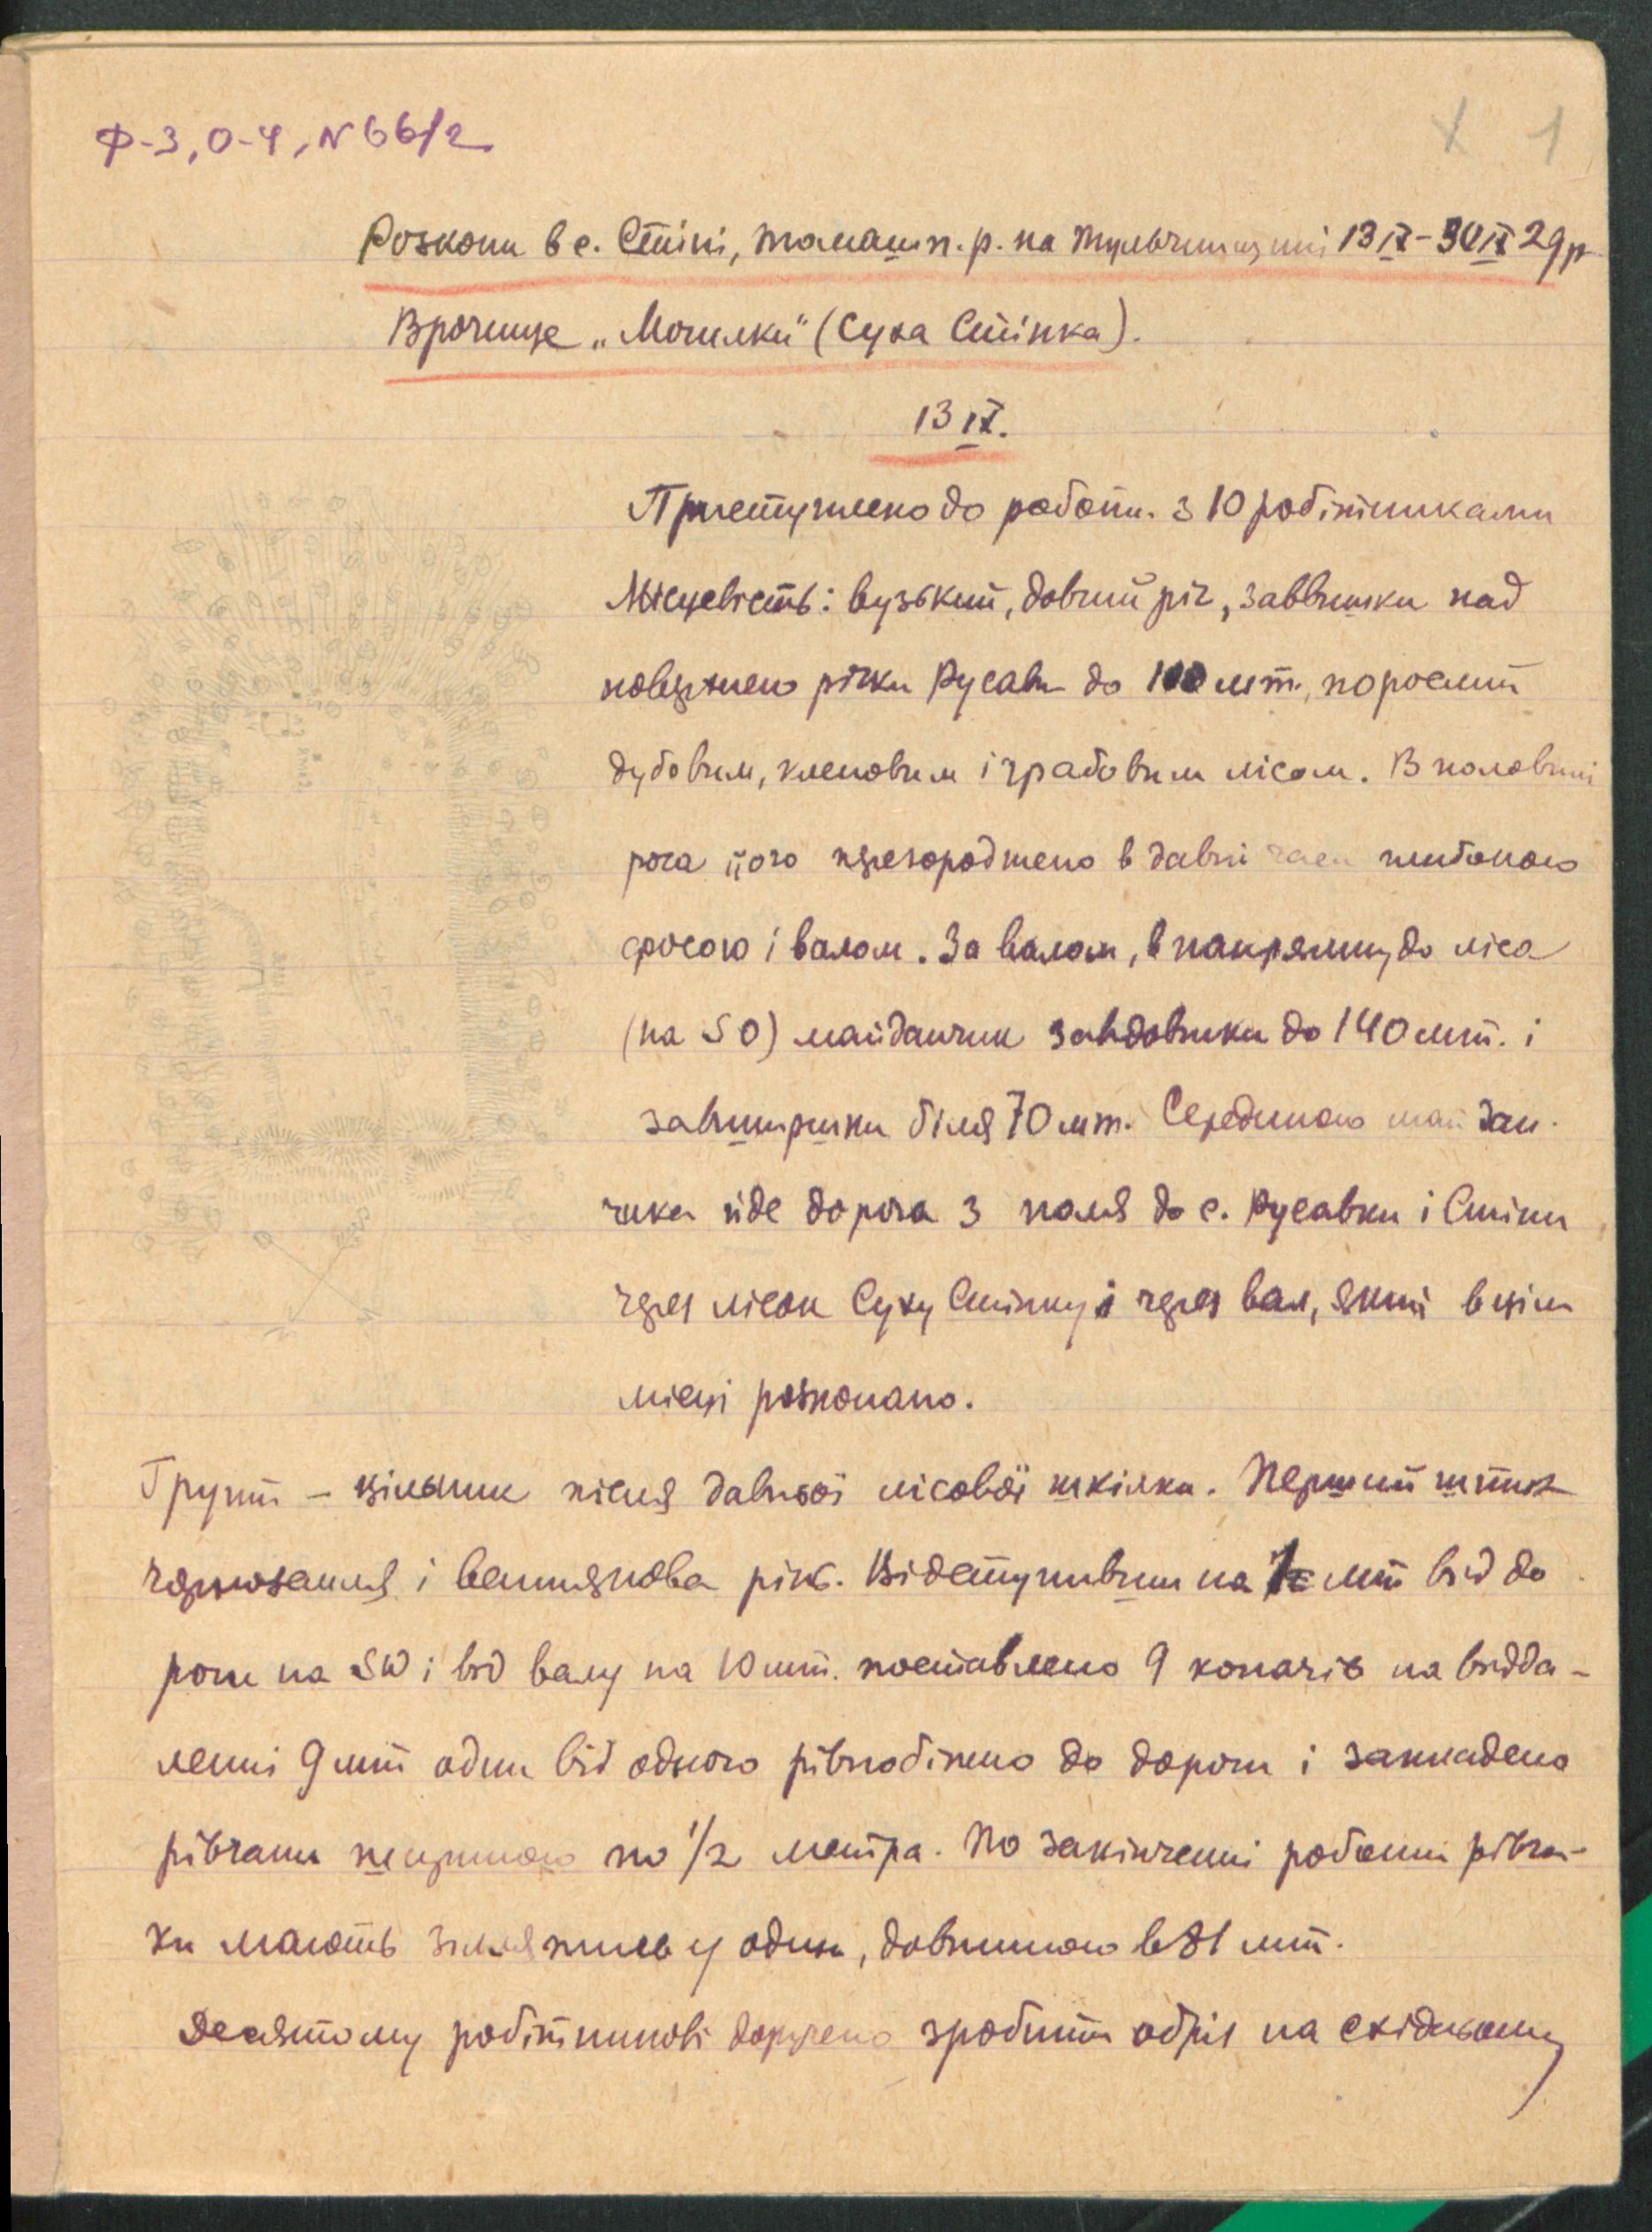 Ф-3, О-4, N 66/2
1
Розкопи в с. Стіні, томашп. р. на Тульчинщині 13 IX - 30 IX 29 р
Врочище „Могилки" (Суха Стінка).
13 IX.
Приступлено до роботи з 10 робітниками
Місцевість: вузький, довгий ріг, заввишки над
поверхнею річки Русави до 100 мт., порослий
дубовим, кленовим і грабовим лісом. В половині
рога його перегороджено в давні часи глибокою
фосою і валом. За валом, в напрямку до ліса
(на SO) майданчик завдовжки до 140 мт. і
завширшки біля 70 мт. Серединою май дан-
чика йде дорога з поля до с. Русавки і Стіни
через лісок Суху Стінку і через вал, який в цім
місці розкопано.
Грунт – цілинник після давньої лісової шкілки. Перший штих
чорноземля і вапнякова рінь. Відступивши на мт від до
роги на SW і від валу на 10 мт. поставлено 9 копачів на відда-
ленні 9 мт один від одного рівнобіжно до дороги і закладено
рівчаки шириною по 1/2 метра. По закінченні роботи рівча-
ки мають злитись у один, довжиною в 81 мт.
Десятому робітникові доручено зробити обріз на східньому